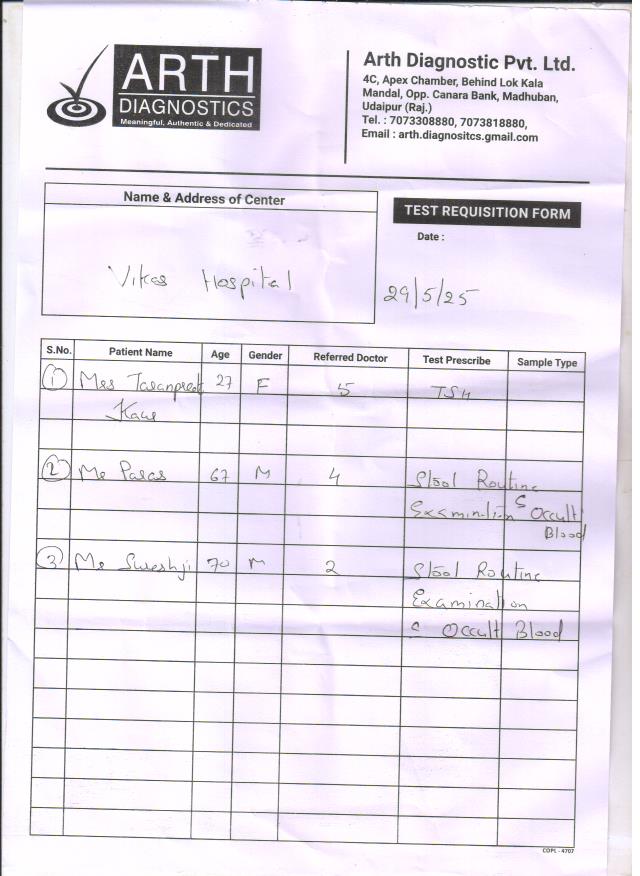 ARTH
DIAGNOSTICS
Meaningful, Authentic & Dedicated
Arth Diagnostic Pvt. Ltd.
4C, Apex Chamber, Behind Lok Kala
Mandal, Opp. Canara Bank, Madhuban,
Udaipur (Raj.)
Tel. : 7073308880, 7073818880,
Email : arth.diagnositcs.gmail.com
Name & Address of Center
TEST REQUISITION FORM
Date :
Vikas Hospital
29/5/25
S.No. Patient Name Age Gender Referred Doctor Test Prescribe Sample Type
1 Mrs Taranpreet 27 F 5 TSH
Kaur
2 Mr Paras 67 M 4 Stool Routine
Examination c Occult
Blood
3 Mr Sureshji 70 M 2 Stool Routine
Examination
c Occult Blood
COPL - 4707